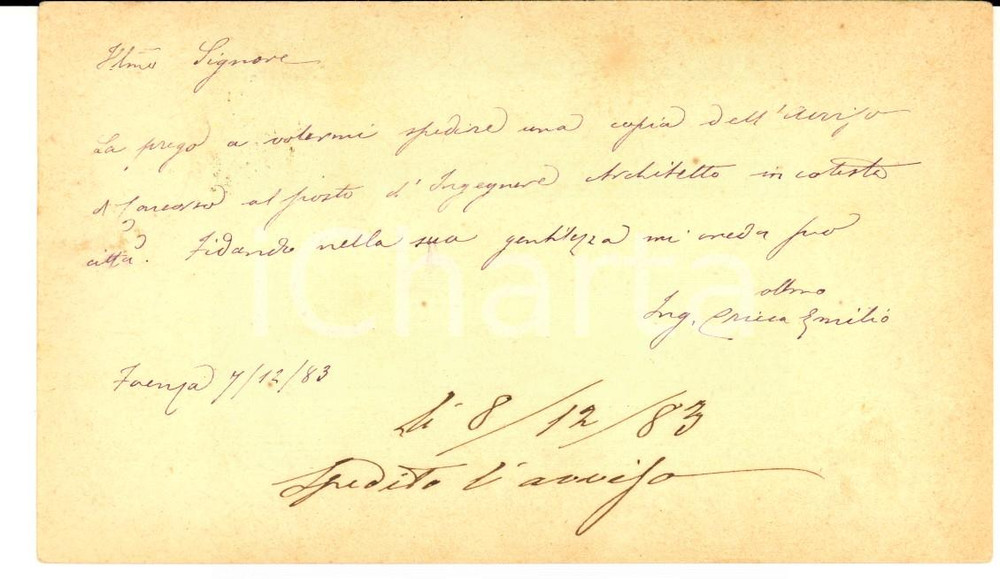 Illmo Signore
La prego a volermi spedire una copia dell'Avviso
di Concorso al posto d'Ingegnere Architetto in cotesta
città. Fidando nella sua gentilezza mi creda suo
obbmo
Ing. Emilio
Faenza 7/12/83
Li 8/12/83
Spedito l'avviso
iCharta